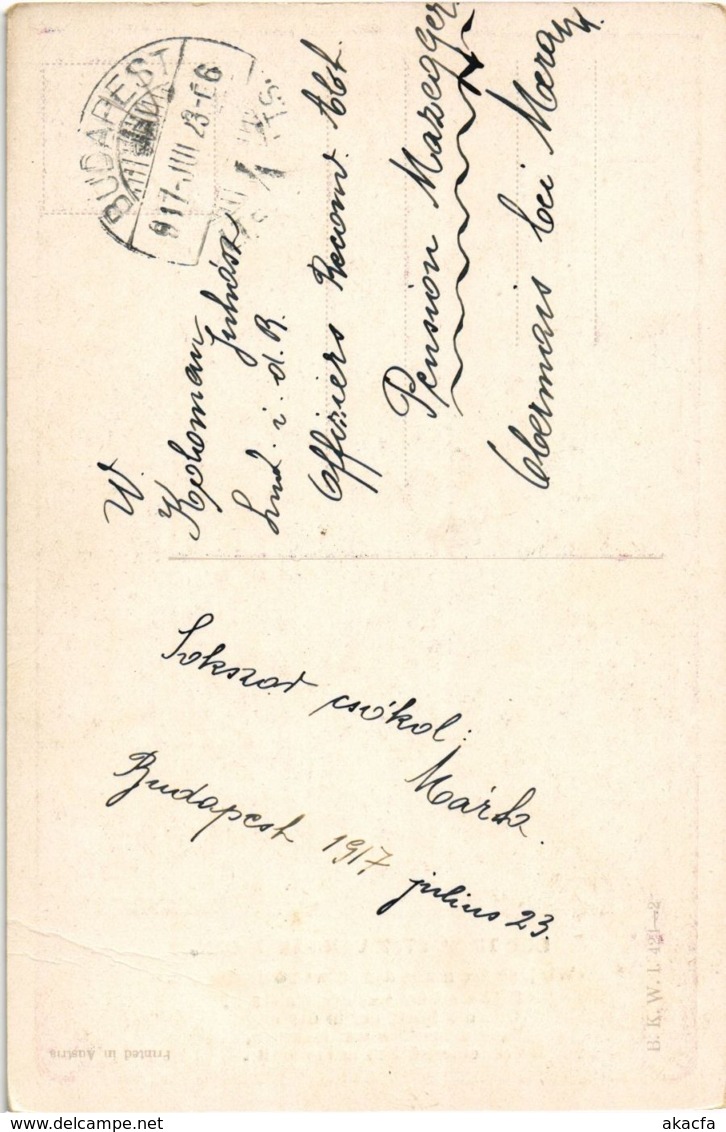 BUDAPEST
917 JUL 23
W.
Koloman
Juhász
Lnd. i. d. R.
Offiziers Reconv. Abt.
Pension Mazegger
Obermais bei Meran
Sokszor csókol:
Márta.
Budapest 1917 július 23.
B. K. W. I. 421-2
Printed in Austria
akacfa